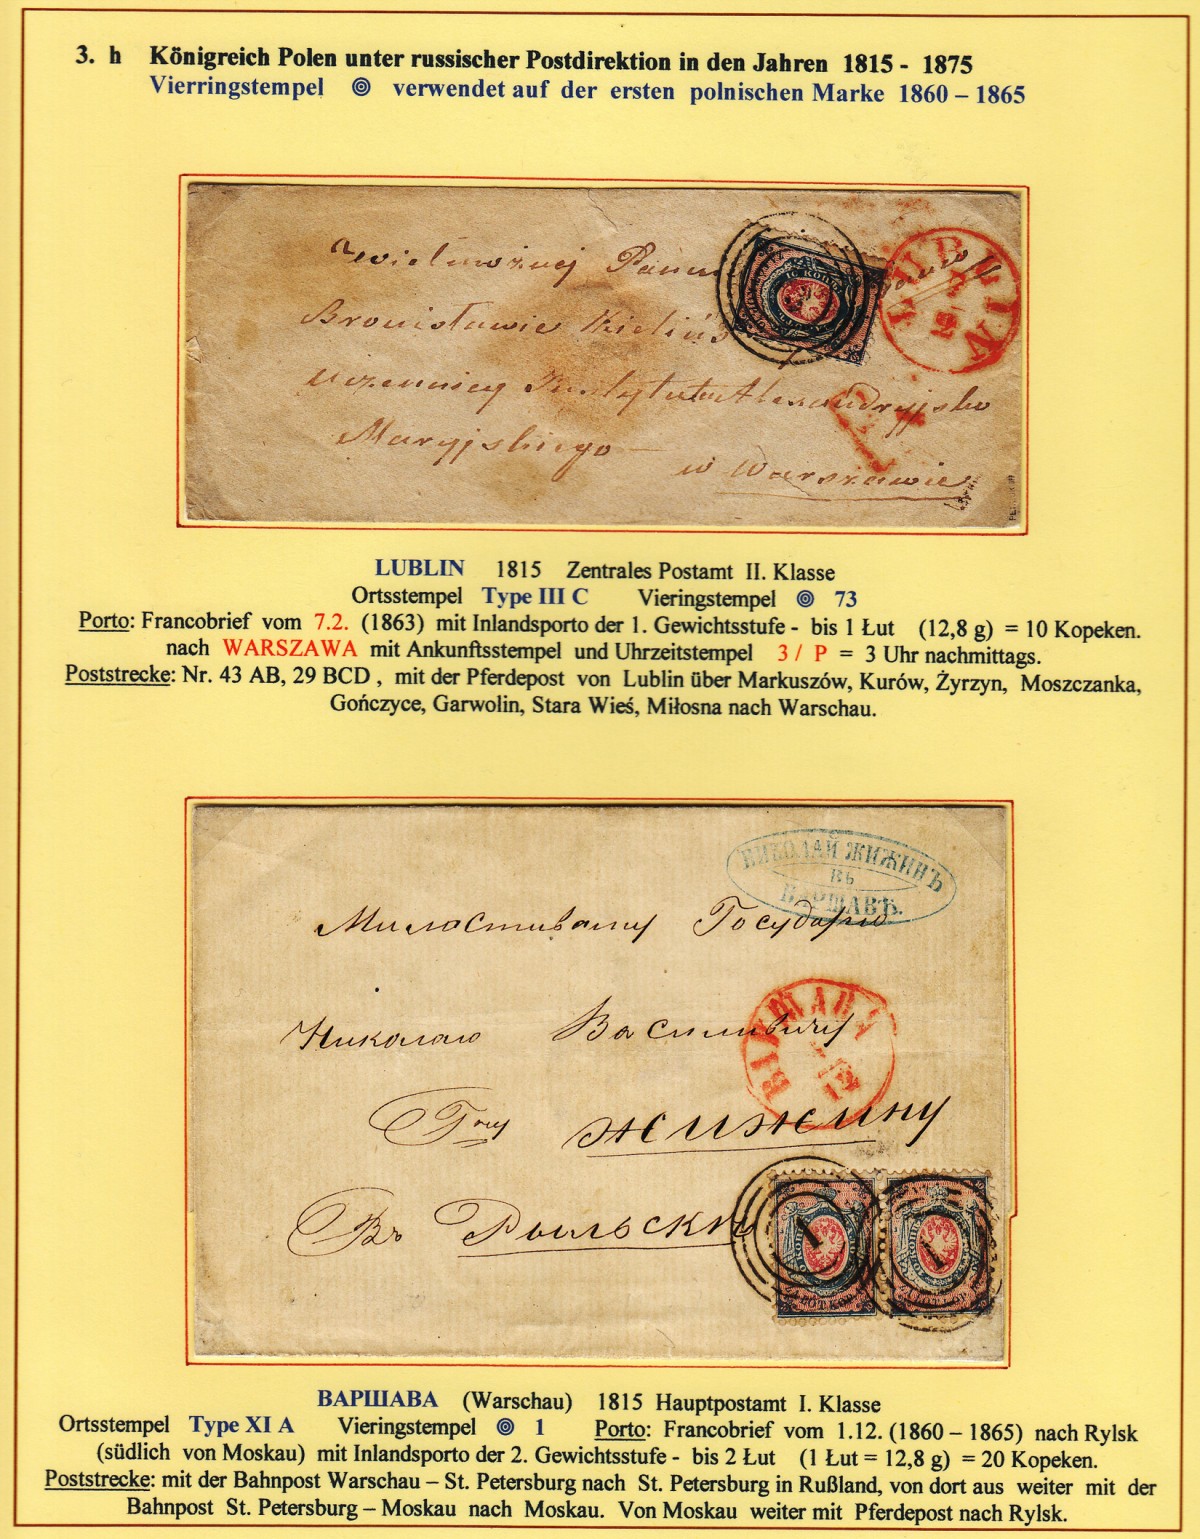 3. h Königreich Polen unter russischer Postdirektion in den Jahren 1815 - 1875
Vierringstempel verwendet auf der ersten polnischen Marke 1860 – 1865
Wielmożnej Pannie
LUBLIN
7/2
10 KOP.
Bronisławie
uczennicy Instytutu Alexandryjsko
Maryjskiego —
w Warszawie
LUBLIN 1815 Zentrales Postamt II. Klasse
Ortsstempel Type III C Vieringstempel 73
Porto: Francobrief vom 7.2. (1863) mit Inlandsporto der 1. Gewichtsstufe - bis 1 Łut (12,8 g) = 10 Kopeken.
nach WARSZAWA mit Ankunftsstempel und Uhrzeitstempel 3 / P = 3 Uhr nachmittags.
Poststrecke: Nr. 43 AB, 29 BCD , mit der Pferdepost von Lublin über Markuszów, Kurów, Żyrzyn, Moszczanka,
Gończyce, Garwolin, Stara Wieś, Miłosna nach Warschau.
НИКОЛАЙ ЖИЖИНЪ
ВЪ
ВАРШАВѢ.
Милостивому Государю
ВАРШАВА
1/12
Николаю Васильевичу
Гну Жижину
Въ Рыльскъ
1 1
ВАРШАВА (Warschau) 1815 Hauptpostamt I. Klasse
Ortsstempel Type XI A Vieringstempel 1 Porto: Francobrief vom 1.12. (1860 – 1865) nach Rylsk
(südlich von Moskau) mit Inlandsporto der 2. Gewichtsstufe - bis 2 Łut (1 Łut = 12,8 g) = 20 Kopeken.
Poststrecke: mit der Bahnpost Warschau – St. Petersburg nach St. Petersburg in Rußland, von dort aus weiter mit der
Bahnpost St. Petersburg – Moskau nach Moskau. Von Moskau weiter mit Pferdepost nach Rylsk.